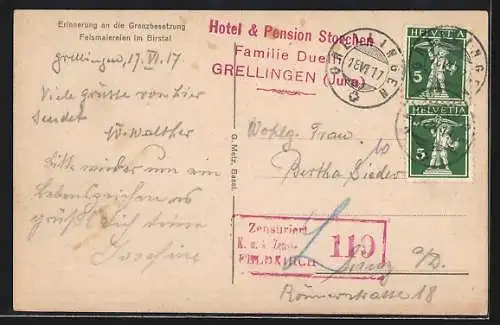 Erinnerung an die Grenzbesetzung
Felsmalereien im Birstal
Grellingen, 17. VI. 17
Viele Grüsse von hier
sendet
W. Walther
Bitte wieder um ein
Lebenszeichen es
grüßt dich deine
Josefine
G. Metz, Basel.
Hotel & Pension Storchen
Familie Duel
GRELLINGEN (Jura)
GRELLINGEN
18 VI 17
HELVETIA
5
HELVETIA
5
Wohlg. Frau
Bertha Lieder
Zensuriert
K. u. k. Zensur
FELDKIRCH
119
Linz a/D.
Römerstrasse 18